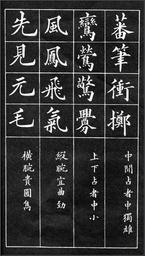 蕃筆衝擲
中間占者中獨雄
鸞鶯驚釁
上下占者中小
風鳳飛氣
縱腕宜曲
先見元毛
橫腕貴圓